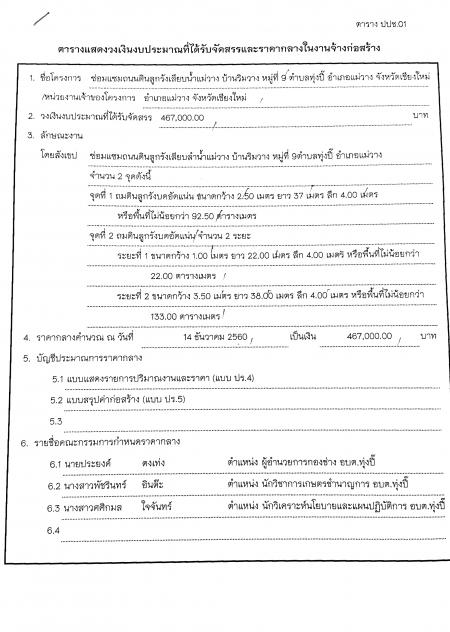 ตาราง ปปช.01
ตารางแสดงวงเงินงบประมาณที่ได้รับจัดสรรและราคากลางในงานจ้างก่อสร้าง
1. ชื่อโครงการ ซ่อมแซมถนนดินลูกรังเลียบน้ำแม่วาง บ้านริมวาง หมู่ที่ 9 ตำบลทุ่งปี้ อำเภอแม่วาง จังหวัดเชียงใหม่
/หน่วยงานเจ้าของโครงการ อำเภอแม่วาง จังหวัดเชียงใหม่
2. วงเงินงบประมาณที่ได้รับจัดสรร 467,000.00 บาท
3. ลักษณะงาน
โดยสังเขป ซ่อมแซมถนนดินลูกรังเลียบลำน้ำแม่วาง บ้านริมวาง หมู่ที่ 9ตำบลทุ่งปี้ อำเภอแม่วาง
จำนวน 2 จุดดังนี้
จุดที่ 1 ถมดินลูกรังบดอัดแน่น ขนาดกว้าง 2.50 เมตร ยาว 37 เมตร ลึก 4.00 เมตร
หรือพื้นที่ไม่น้อยกว่า 92.50 ตารางเมตร
จุดที่ 2 ถมดินลูกรังบดอัดแน่น จำนวน 2 ระยะ
ระยะที่ 1 ขนาดกว้าง 1.00 เมตร ยาว 22.00 เมตร ลึก 4.00 เมตร หรือพื้นที่ไม่น้อยกว่า
22.00 ตารางเมตร
ระยะที่ 2 ขนาดกว้าง 3.50 เมตร ยาว 38.00 เมตร ลึก 4.00 เมตร หรือพื้นที่ไม่น้อยกว่า
133.00 ตารางเมตร
4. ราคากลางคำนวณ ณ วันที่ 14 ธันวาคม 2560 เป็นเงิน 467,000.00 บาท
5. บัญชีประมาณการราคากลาง
5.1 แบบแสดงรายการปริมาณงานและราคา (แบบ ปร.4)
5.2 แบบสรุปค่าก่อสร้าง (แบบ ปร.5)
5.3
6. รายชื่อคณะกรรมการกำหนดราคากลาง
6.1 นายประยงค์ ตงเท่ง ตำแหน่ง ผู้อำนวยการกองช่าง อบต.ทุ่งปี้
6.2 นางสาวพัชรินทร์ อินต๊ะ ตำแหน่ง นักวิชาการเกษตรชำนาญการ อบต.ทุ่งปี้
6.3 นางสาวศศิกมล ใจจันทร์ ตำแหน่ง นักวิเคราะห์นโยบายและแผนปฏิบัติการ อบต.ทุ่งปี้
6.4